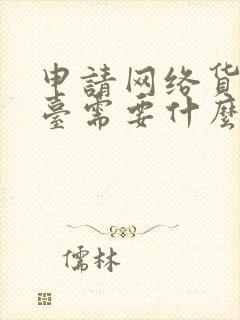 申請网络货
臺需要什麼
儒林